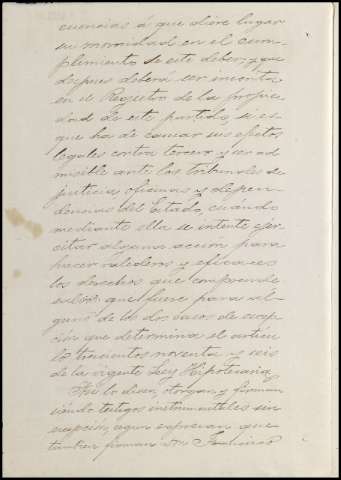 cuencias á que diere lugar
su morosidad en el cum-
plimiento de este deber; y que
despues deberá ser inscrita
en el Registro de la propie-
dad de este partido, si es
que ha de causar sus efectos
legales contra tercero y ser ad
misible ante los Tribunales de
justicia oficinas y depen-
dencias del Estado, cuándo
mediante ella se intente ejer-
citar alguna acción para
hacer valederos y eficaces
los derechos que comprende
salvo que fuere para al-
guno de los dos casos de escep-
ción que determina el artícu
lo trescientos noventa y seis
de la vigente Ley Hipotecaria
Así lo dicen, otorgan, y firman
siendo testigos instrumentales sin
escepción, segun espresan que
tambien firman Don Francisco